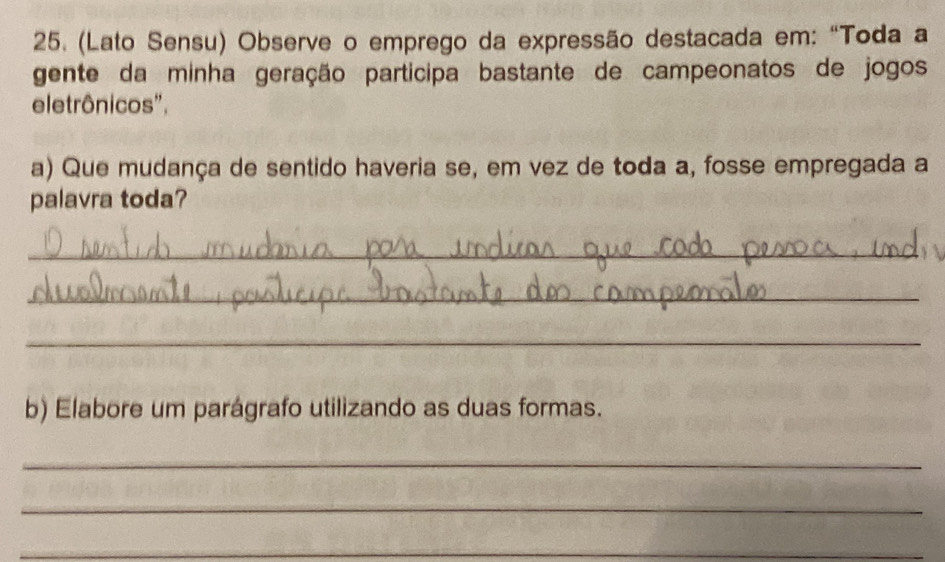 25. (Lato Sensu) Observe o emprego da expressão destacada em: “Toda a
gente da minha geração participa bastante de campeonatos de jogos
eletrônicos”.
a) Que mudança de sentido haveria se, em vez de toda a, fosse empregada a
palavra toda?
O sentido mudaria para indicar que cada pessoa, indivi
dualmente, participa bastante dos campeonatos
b) Elabore um parágrafo utilizando as duas formas.